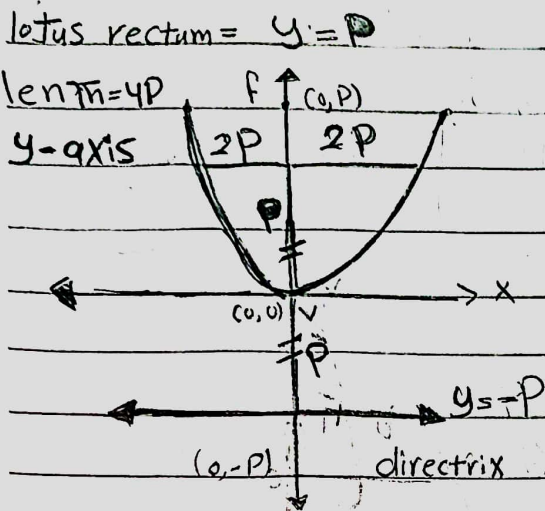 lotus rectum = y = P
length = 4P F (0,P)
y-axis 2P 2P
P
x
(0,0) V
P
y = -P
(0,-P) directrix